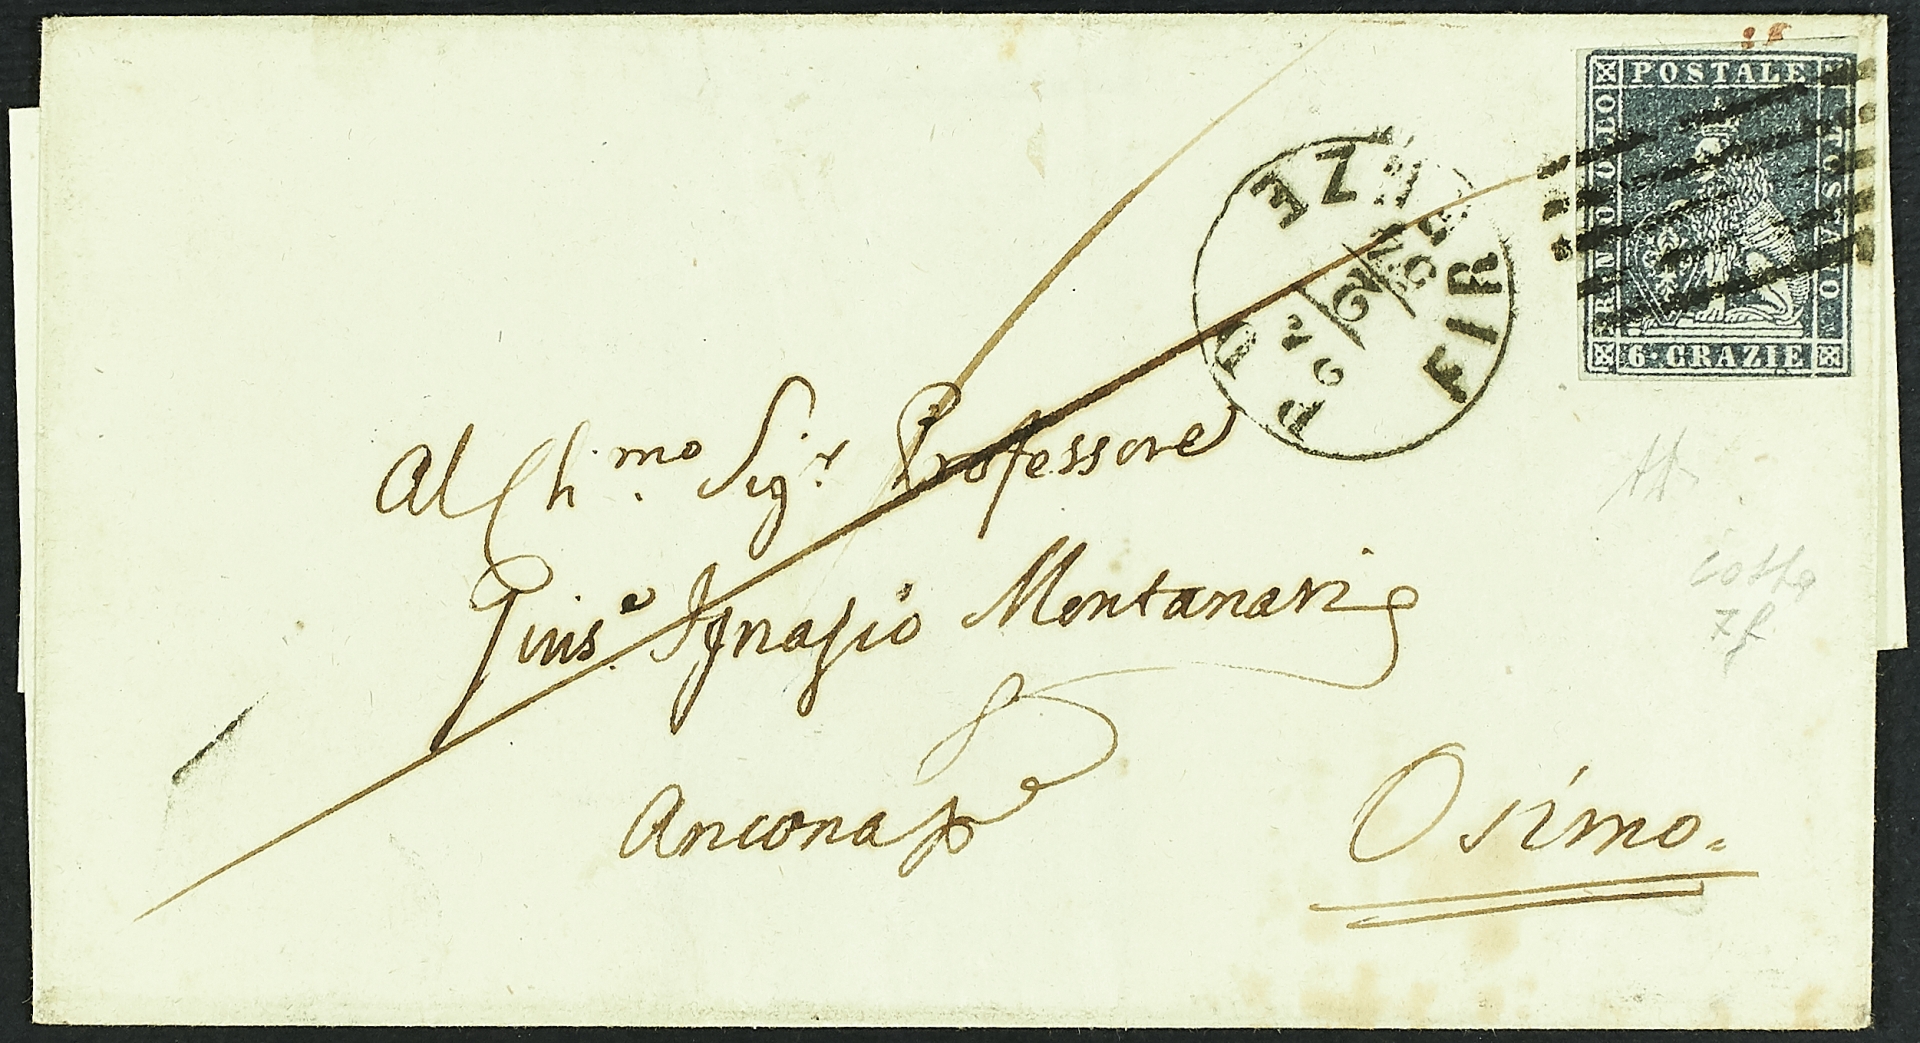 POSTALE
FRANCOBOLLO
6·CRAZIE
FIRENZE
Al Ch.mo Sig.r Professore
Gius.e Ignazio Montanari
Ancona p
Osimo.